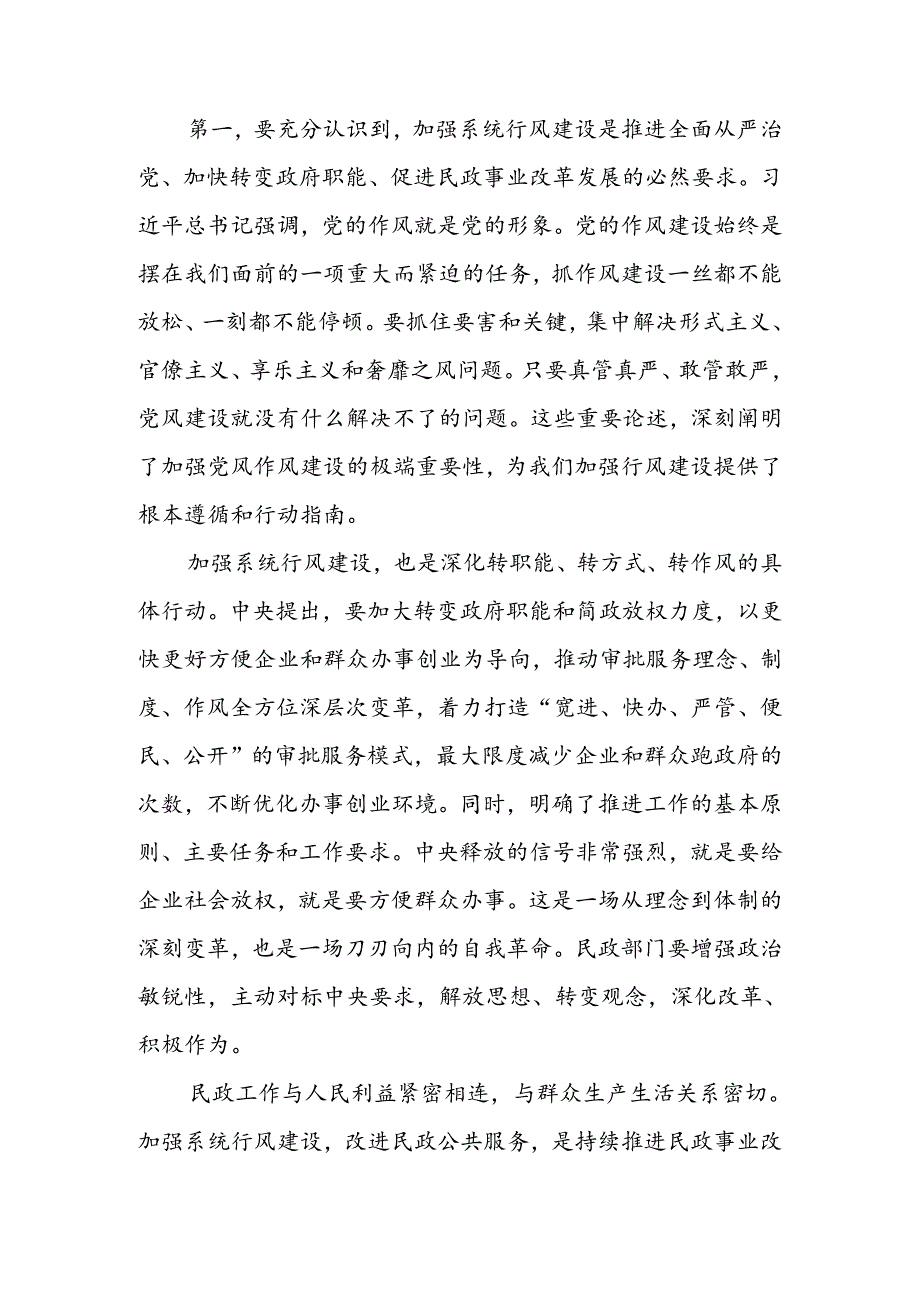 第一，要充分认识到，加强系统行风建设是推进全面从严治
党、加快转变政府职能、促进民政事业改革发展的必然要求。习
近平总书记强调，党的作风就是党的形象。党的作风建设始终是
摆在我们面前的一项重大而紧迫的任务，抓作风建设一丝都不能
放松、一刻都不能停顿。要抓住要害和关键，集中解决形式主义、
官僚主义、享乐主义和奢靡之风问题。只要真管真严、敢管敢严，
党风建设就没有什么解决不了的问题。这些重要论述，深刻阐明
了加强党风作风建设的极端重要性，为我们加强行风建设提供了
根本遵循和行动指南。
加强系统行风建设，也是深化转职能、转方式、转作风的具
体行动。中央提出，要加大转变政府职能和简政放权力度，以更
快更好方便企业和群众办事创业为导向，推动审批服务理念、制
度、作风全方位深层次变革，着力打造“宽进、快办、严管、便
民、公开”的审批服务模式，最大限度减少企业和群众跑政府的
次数，不断优化办事创业环境。同时，明确了推进工作的基本原
则、主要任务和工作要求。中央释放的信号非常强烈，就是要给
企业社会放权，就是要方便群众办事。这是一场从理念到体制的
深刻变革，也是一场刀刃向内的自我革命。民政部门要增强政治
敏锐性，主动对标中央要求，解放思想、转变观念，深化改革、
积极作为。
民政工作与人民利益紧密相连，与群众生产生活关系密切。
加强系统行风建设，改进民政公共服务，是持续推进民政事业改